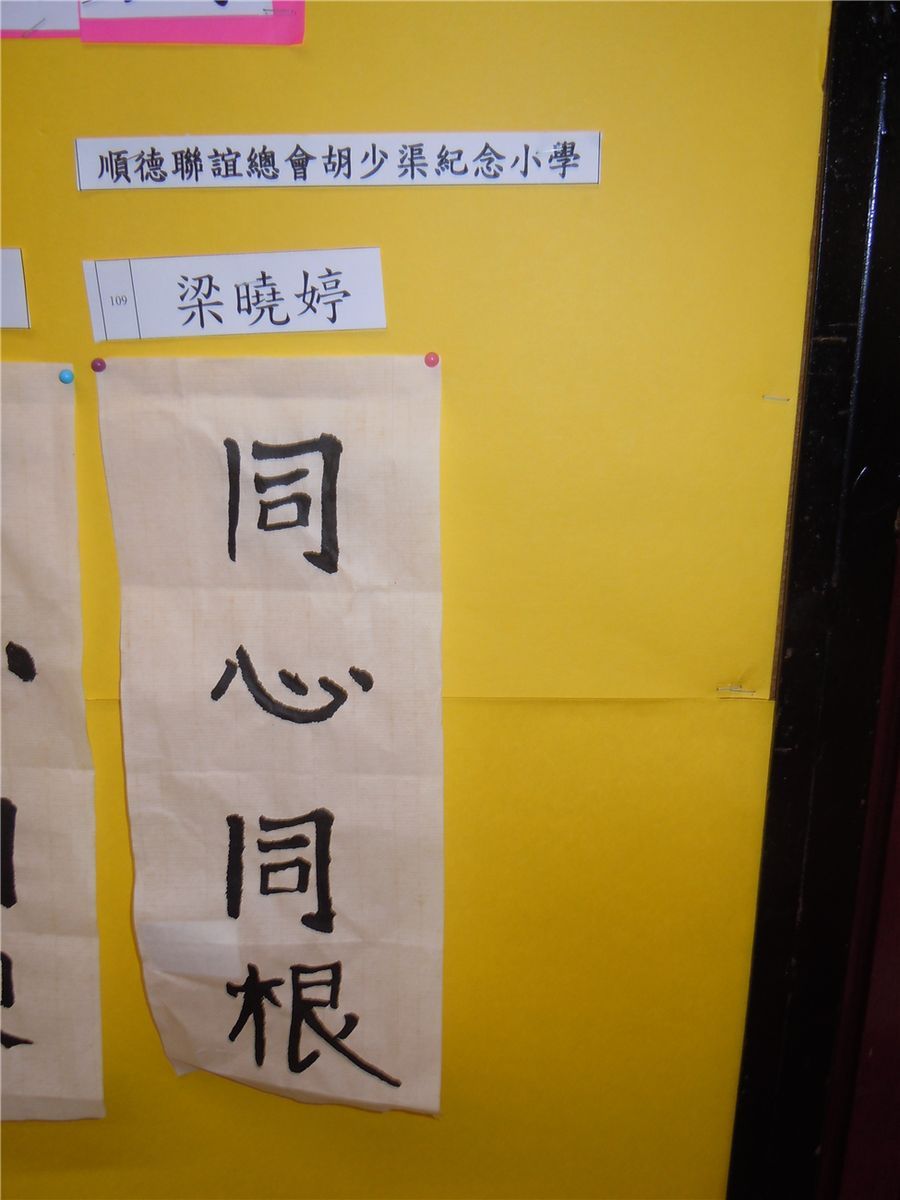 順德聯誼總會胡少渠紀念小學
109 梁曉婷
同心同根